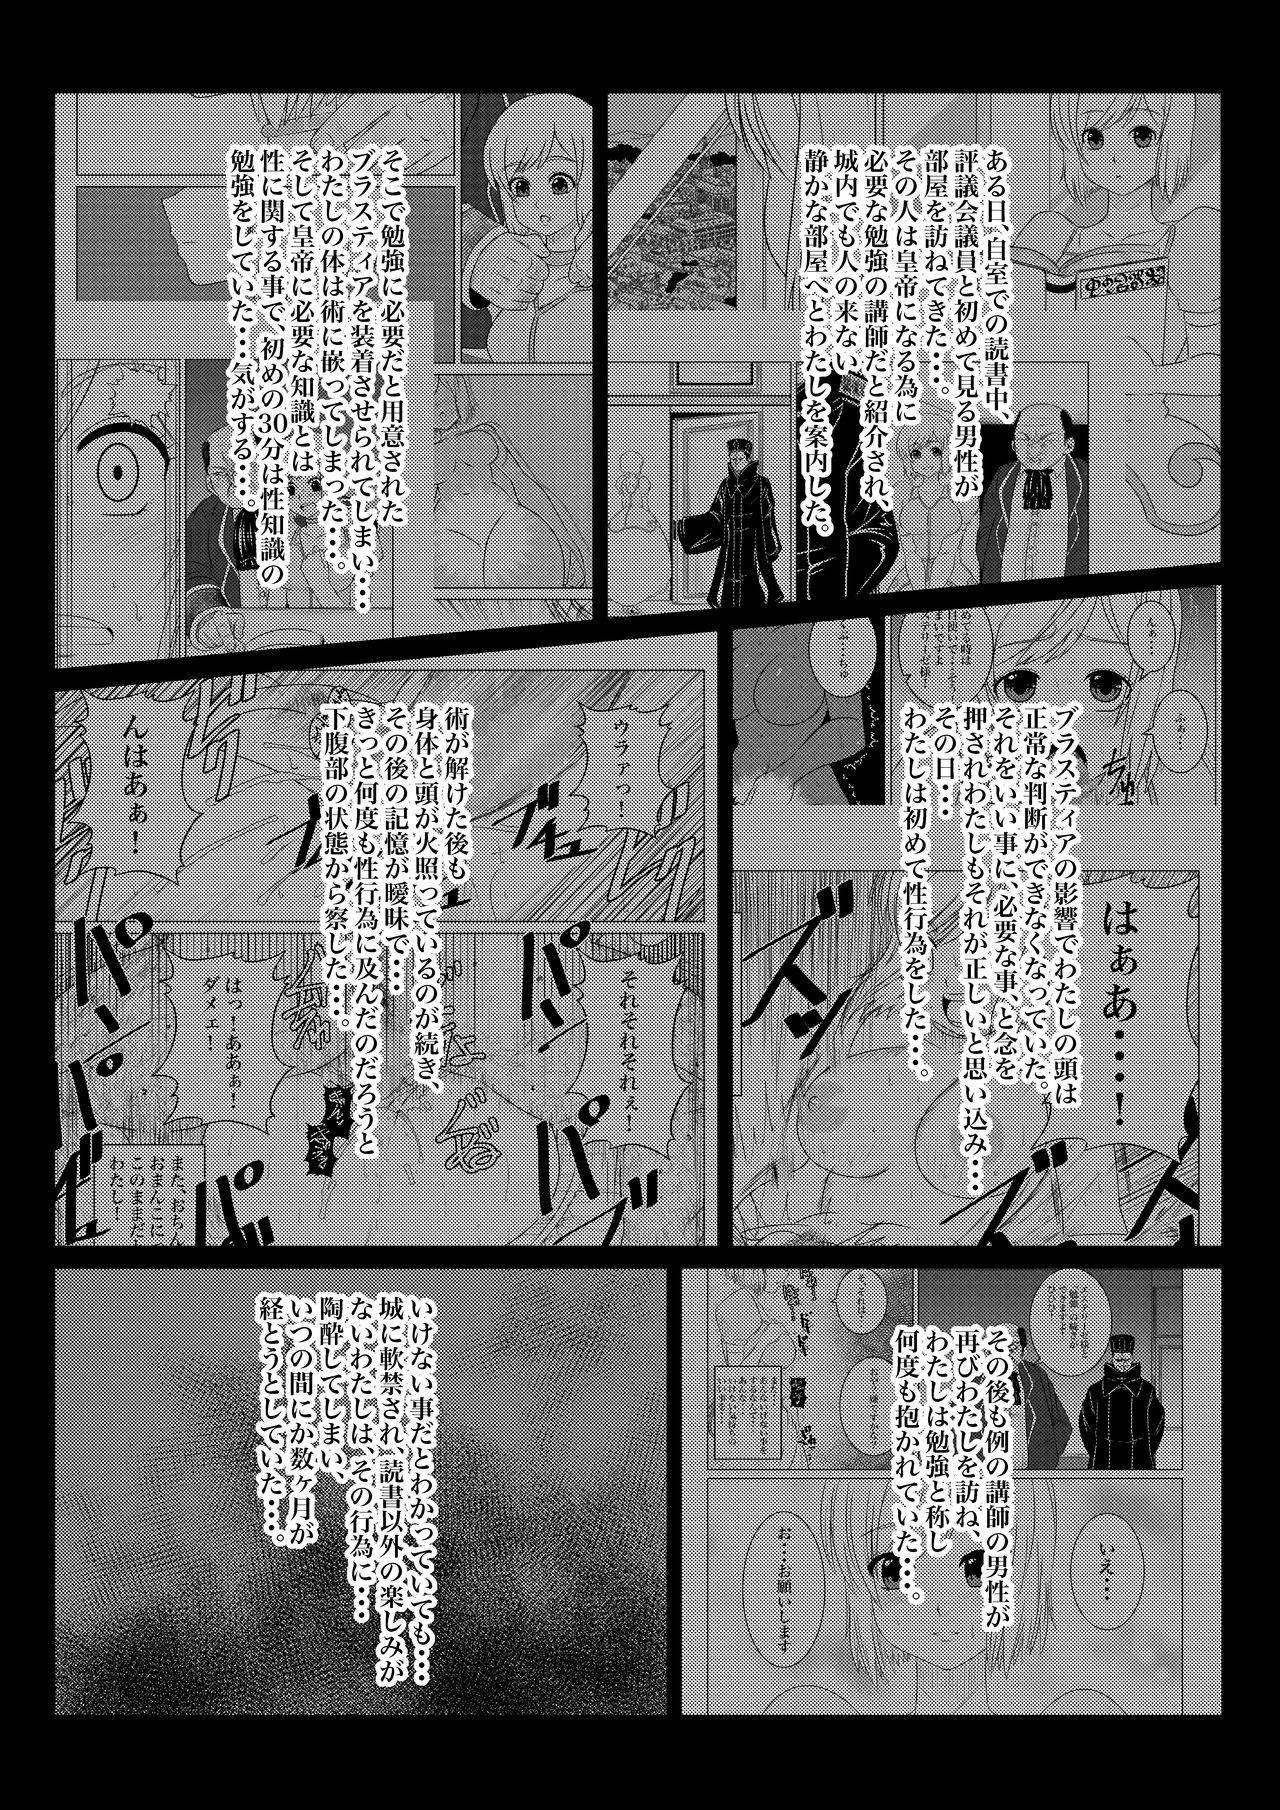 ある日、自室での読書中、
評議会議員と初めて見る男性が
部屋を訪ねてきた・・・。
その人は皇帝になる為に
必要な勉強の講師だと紹介され、
城内でも人の来ない
静かな部屋へとわたしを案内した。
そこで勉強に必要だと用意された
ブラスティアを装着させられてしまい・・・
わたしの体は術に嵌ってしまった・・・。
そして皇帝に必要な知識とは
性に関する事で、初めの30分は性知識の
勉強をしていた・・・気がする・・・。
んぁ・・・
ふぁ・・・
くぷ・・・ちゅ
ブラスティアの影響でわたしの頭は
正常な判断ができなくなっていた。
それをいい事に、必要な事、と念を
押されわたしもそれが正しいと思い込み・・・
その日・・・
わたしは初めて性行為をした・・・。
はぁあ・・・！
ウラァっ！
んはあぁ！
術が解けた後も
身体と頭が火照っているのが続き、
その後の記憶が曖昧で・・・
きっと何度も性行為に及んだのだろうと
下腹部の状態から察した・・・。
それそれそれぇ！
はっ！ああぁ！
ダメェ！
また、おちん
おまんこに
このままだ
わたし！
その後も例の講師の男性が
再びわたしを訪ね、
わたしは勉強と称し
何度も抱かれていた・・・。
いえ・・・
お・・お願いします
いけない事だとわかっていても・・・
城に軟禁され、読書以外の楽しみが
ないわたしは、その行為に・・・
陶酔してしまい、
いつの間にか数ヶ月が
経とうとしていた・・・。